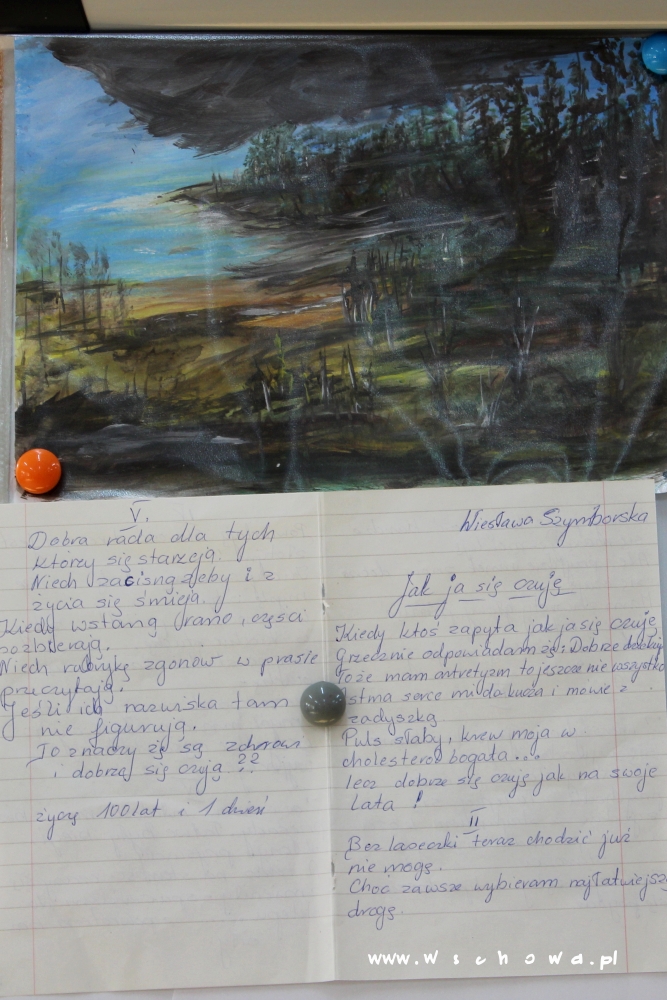 V.
Dobra rada dla tych
którzy się starzeją.
Niech zacisną zęby i z
życia się śmieją.
Kiedy wstaną rano, części
pozbierają.
Niech rubrykę zgonów w prasie
przeczytają.
Jeśli ich nazwiska tam
nie figurują.
To znaczy że są zdrowi
i dobrze się czują ??
życzę 100 lat i 1 dzień
Wiesława Szymborska
Jak ja się czuję
Kiedy ktoś zapyta jak ja się czuję
Grzecznie odpowiadam że: Dobrze
To że mam artretyzm to jeszcze nie wszystko
Astma serce mi dokucza i mówię z
zadyszką
Puls słaby, krew moja w
cholesterol bogata...
lecz dobrze się czuję jak na swoje
lata !
II
Bez laseczki teraz chodzić już
nie mogę.
Choć zawsze wybieram najłatwiejszą
drogę.
www.wschowa.pl